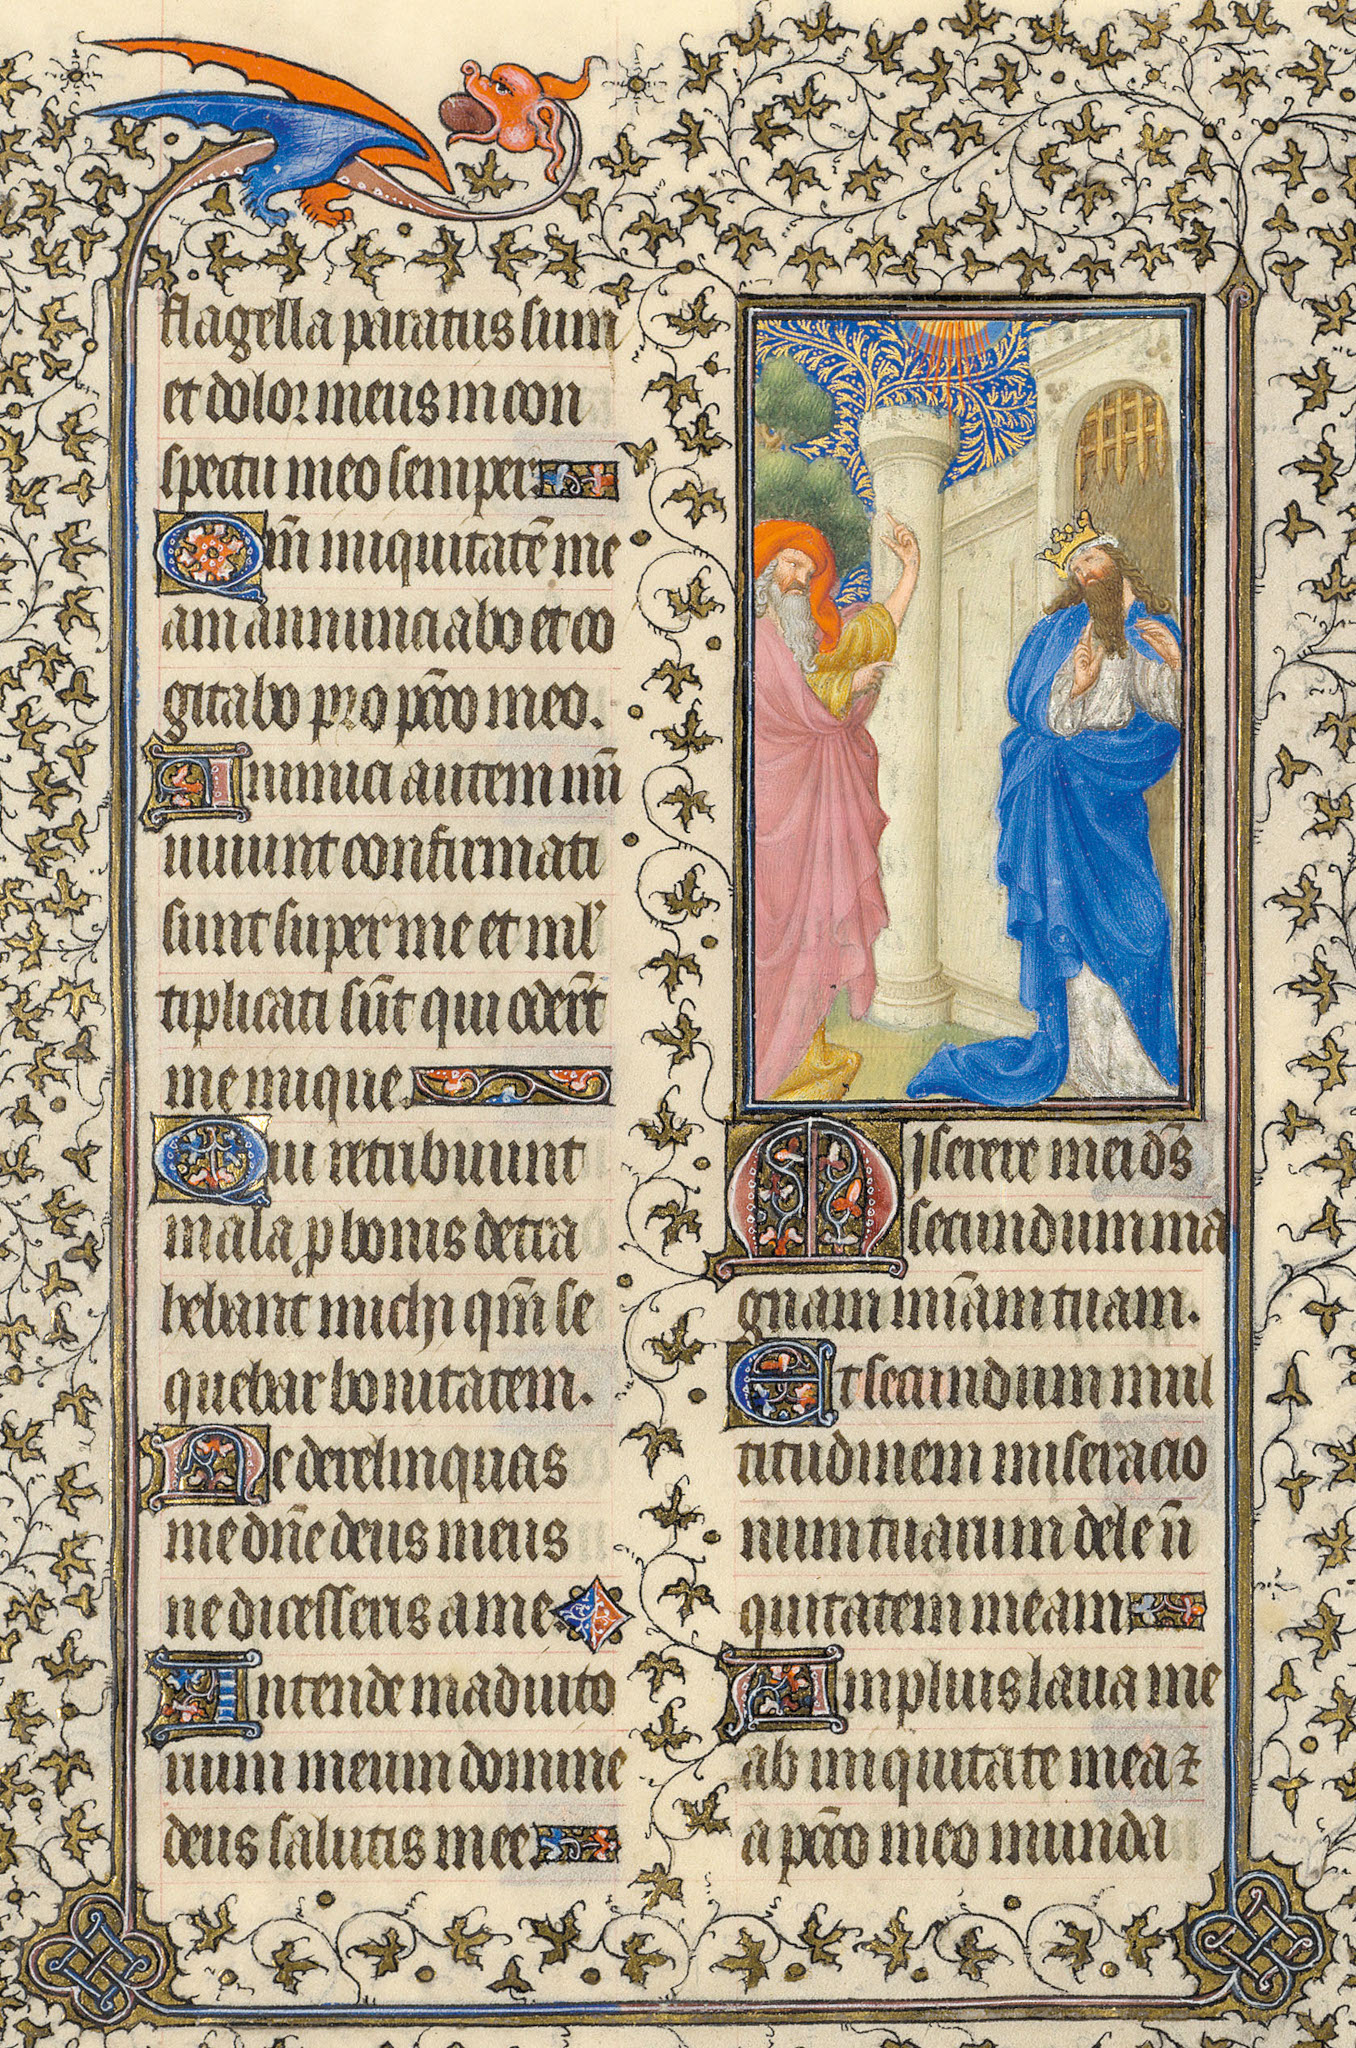 flagella paratus sum
et dolor meus in con
spectu meo semper.
Qm̄ iniquitatē me
am annunciabo et co
gitabo pro pc̄c̄o meo.
Inimici autem mei
uiuunt confirmati
sunt super me et ml̕
tiplicati sūt qui oder̄t
me inique.
Qui retribuunt
mala ꝓ bonis detra
hebant michi qm̄ se
quebar bonitatem.
Ne derelinquas
me dn̄e deus meus
ne dicesseris a me.
Intende in adiuto
rium meum domine
deus salutis mee.
Miserere mei ds̄
secundum ma
gnam mīam tuam.
Et secundum mul
titudinem miseracio
num tuarum dele īi
quitatem meam
Amplius laua me
ab iniquitate mea ⁊
a pc̄c̄o meo munda